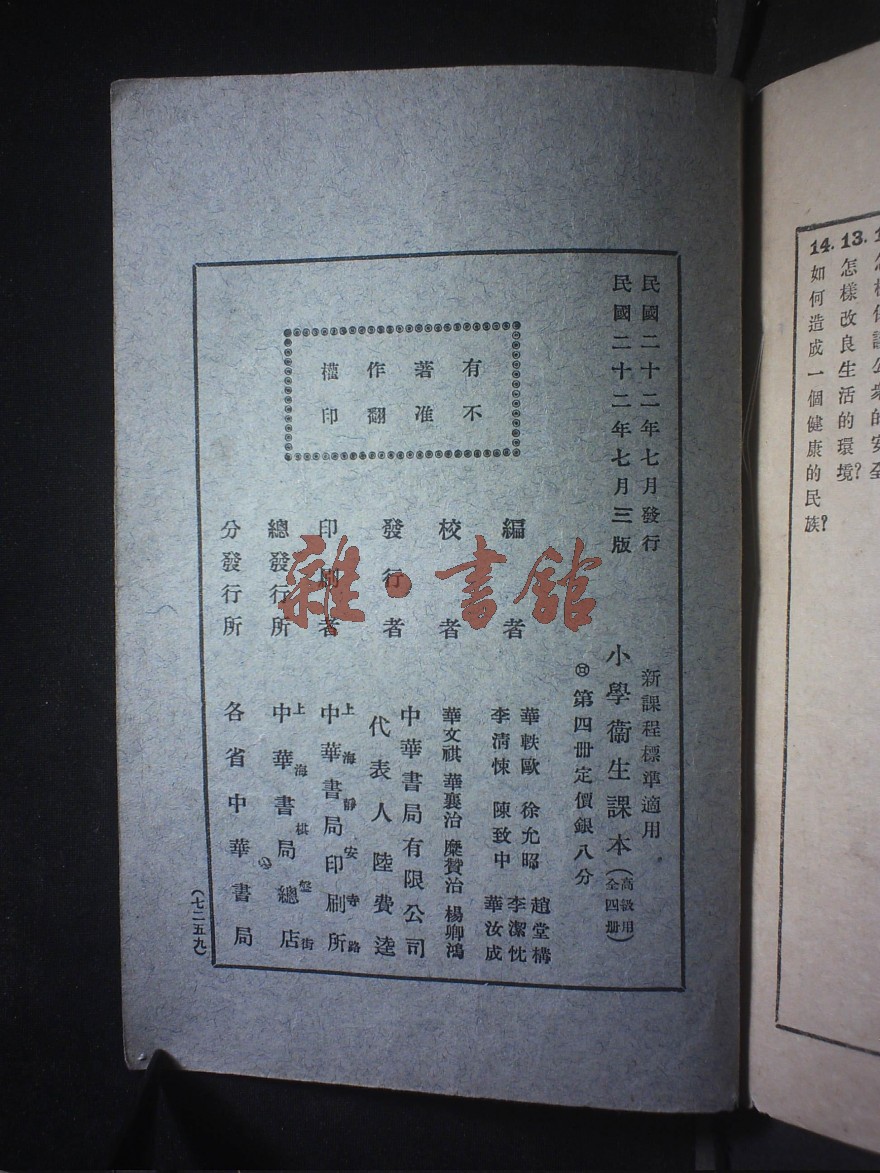 14. 如何造成一個健康的民族?
13. 怎樣改良生活的環境?
民國二十二年七月發行
民國二十二年七月三版
新課程標準適用
小學衞生課本(高級用全四册)
第四册定價銀八分
有著作權
不准翻印
編者
華軼歐 徐允昭 趙堂構
李清悚 陳致中 李潔忱
華汝成
校者
華文祺 華襄治 糜贊治 楊卿鴻
發行者
中華書局有限公司
代表人陸費逵
印刷者
上海靜安寺路
中華書局印刷所
總發行所
上海棋盤街
中華書局總店
分發行所
各省中華書局
(七二五九)
雜·書館